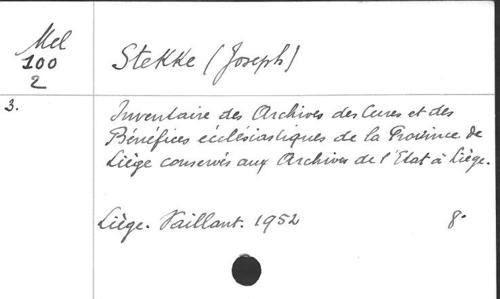 Mel
100
2
Stekke (Joseph)
3.
Inventaire des Archives des Cures et des
Bénéfices ecclésiastiques de la Province de
Liège conservés aux Archives de l'Etat à Liège.
Liège. Vaillant. 1952
8°